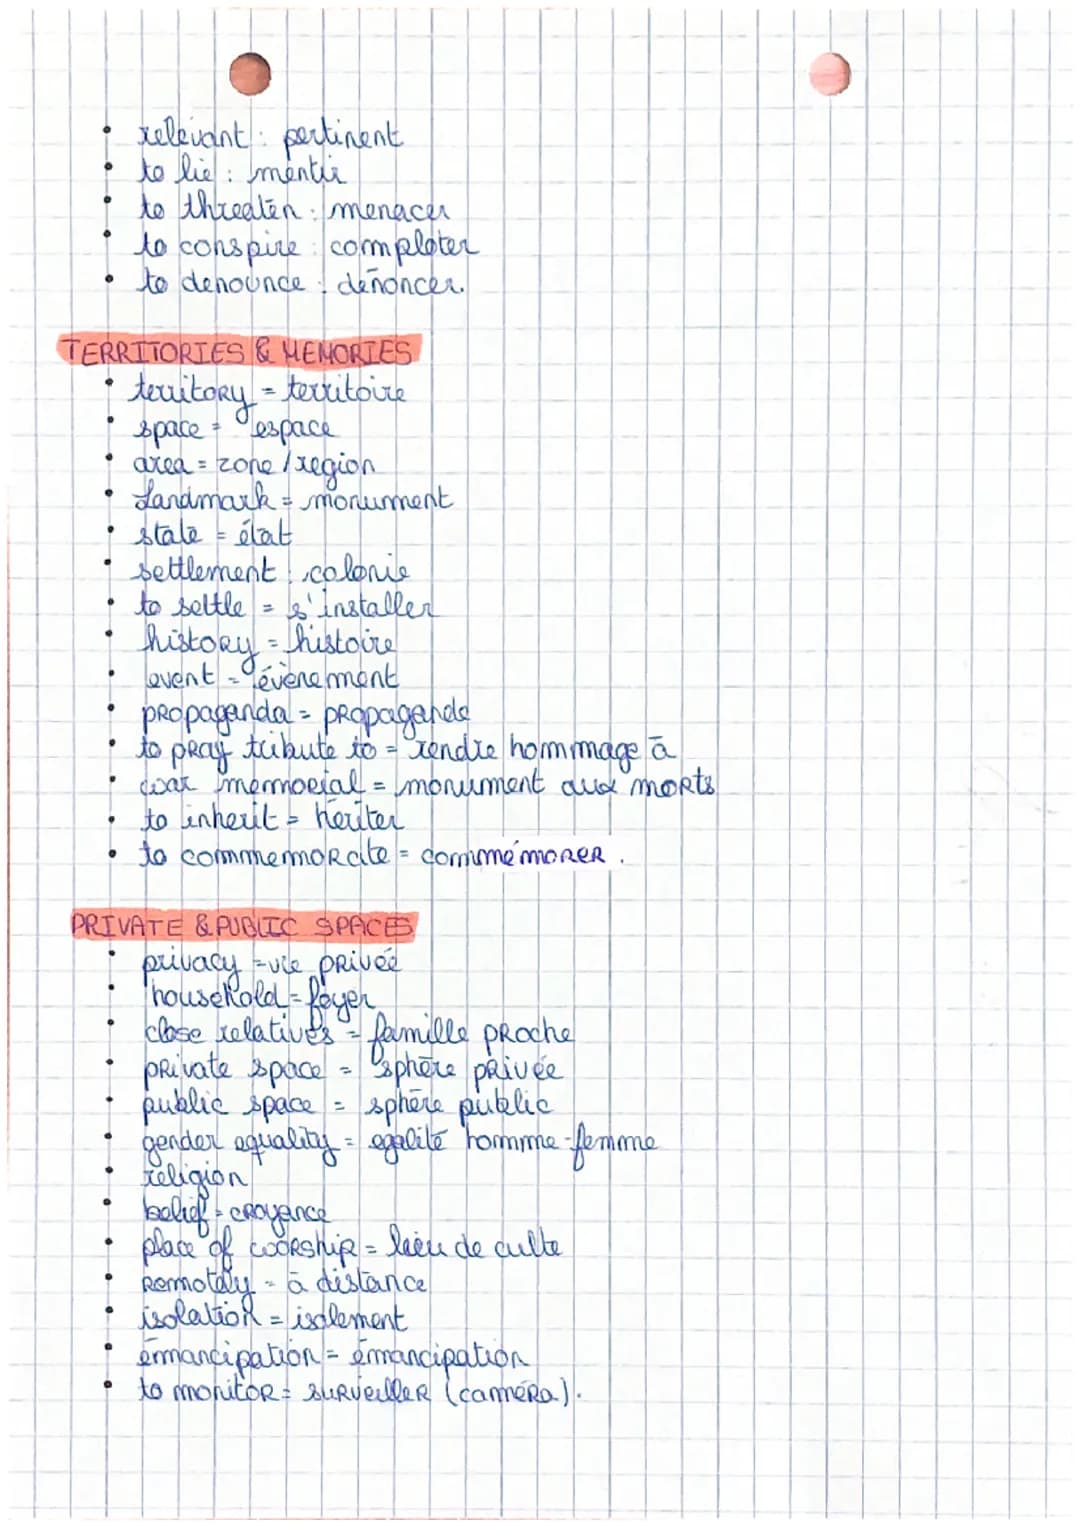 • relevant : pertinent
• to lie : mentir
• to threaten : menacer
• to conspire : comploter
• to denounce : dénoncer.
TERRITORIES & MEMORIES
• territory = territoire
• space = espace
• area = zone / region
• Landmark = monument
• state = état
• settlement : colonie
• to settle = s'installer
• history = histoire
• event = évènement
• propaganda = propagande
• to pray tribute to = rendre hommage à
• war memorial = monument aux morts
• to inherit = hériter
• to commemorate = commémorer .
PRIVATE & PUBLIC SPACES
• privacy = vie privée
• household = foyer
• close relatives = famille proche
• private space = sphère privée
• public space = sphère public
• gender equality = egalité homme-femme
• religion
• belief = croyance
• place of worship = lieu de culte
• remotely = à distance
• isolation = isolement
• émancipation = émancipation
• to monitor = surveiller (caméra).